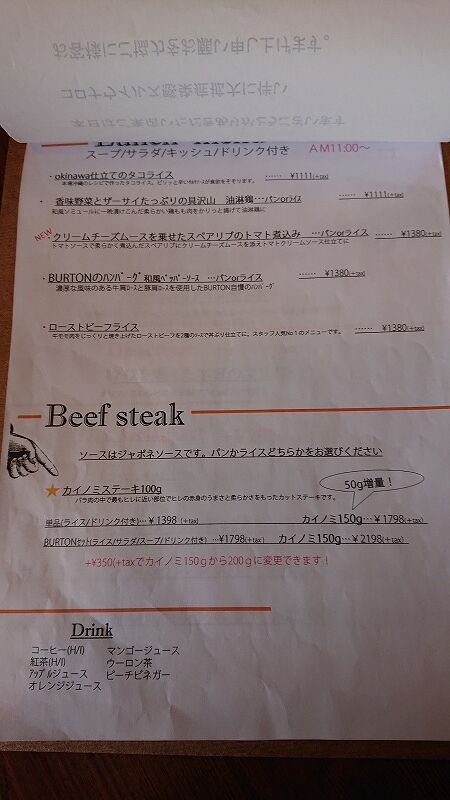 お客様にご協力をお願い申し上げます。
コロナウイルス感染症拡大に伴い
Lunch menu
スープ/サラダ/キッシュ/ドリンク付き AM11:00～
・okinawa仕立てのタコライス …… ¥1111(+tax)
本場沖縄のレシピで作ったタコライス。ピリッと辛いｻﾙｻｿｰｽが食欲をそそります。
・香味野菜とザーサイたっぷりの具沢山 油淋鶏…パンorﾗｲｽ …… ¥1111(+tax)
和風ソミュールに一晩漬けこんだ柔らかい鶏もも肉をかりっと揚げて油淋鶏に
NEW
・クリームチーズムースを乗せたスペアリブのトマト煮込み …パンorライス …… ¥1380(+tax)
トマトソースで柔らかく煮込んだスペアリブにクリームチーズムースを添えトマトクリームソース仕立てに
・BURTONのﾊﾝﾊﾞｰｸﾞ 和風ﾍﾟｯﾊﾟｰｿｰｽ …パンorライス …… ¥1380(+tax)
濃厚な風味のある牛肩ﾛｰｽと豚肩ﾛｰｽを使用したBURTON自慢のﾊﾝﾊﾞｰｸﾞ
・ローストビーフライス …… ¥1380(+tax)
牛モモ肉をじっくりと焼き上げたローストビーフを2種のｿｰｽで丼ぶり仕立てに。スタッフ人気No１のメニューです。
Beef steak
ソースはジャポネソースです。パンかライスどちらかをお選びください
50g増量！
★カイノミステーキ100g
バラ肉の中で最もヒレに近い部位でヒレの赤身のうまさと柔らかさをもったカットステーキです。
単品(ライス/ドリンク付き)…¥1398 (+tax) カイノミ150g…¥1798(+tax)
BURTONｾｯﾄ(ライス/サラダ/スープ/ドリンク付き) …¥1798(+tax) カイノミ150g…¥2198(+tax)
+¥350(+taxでカイノミ150ｇから200ｇに変更できます！
Drink
コーヒー(H/I) マンゴージュース
紅茶(H/I) ウーロン茶
ｱｯﾌﾟﾙジュース ピーチビネガー
オレンジジュース